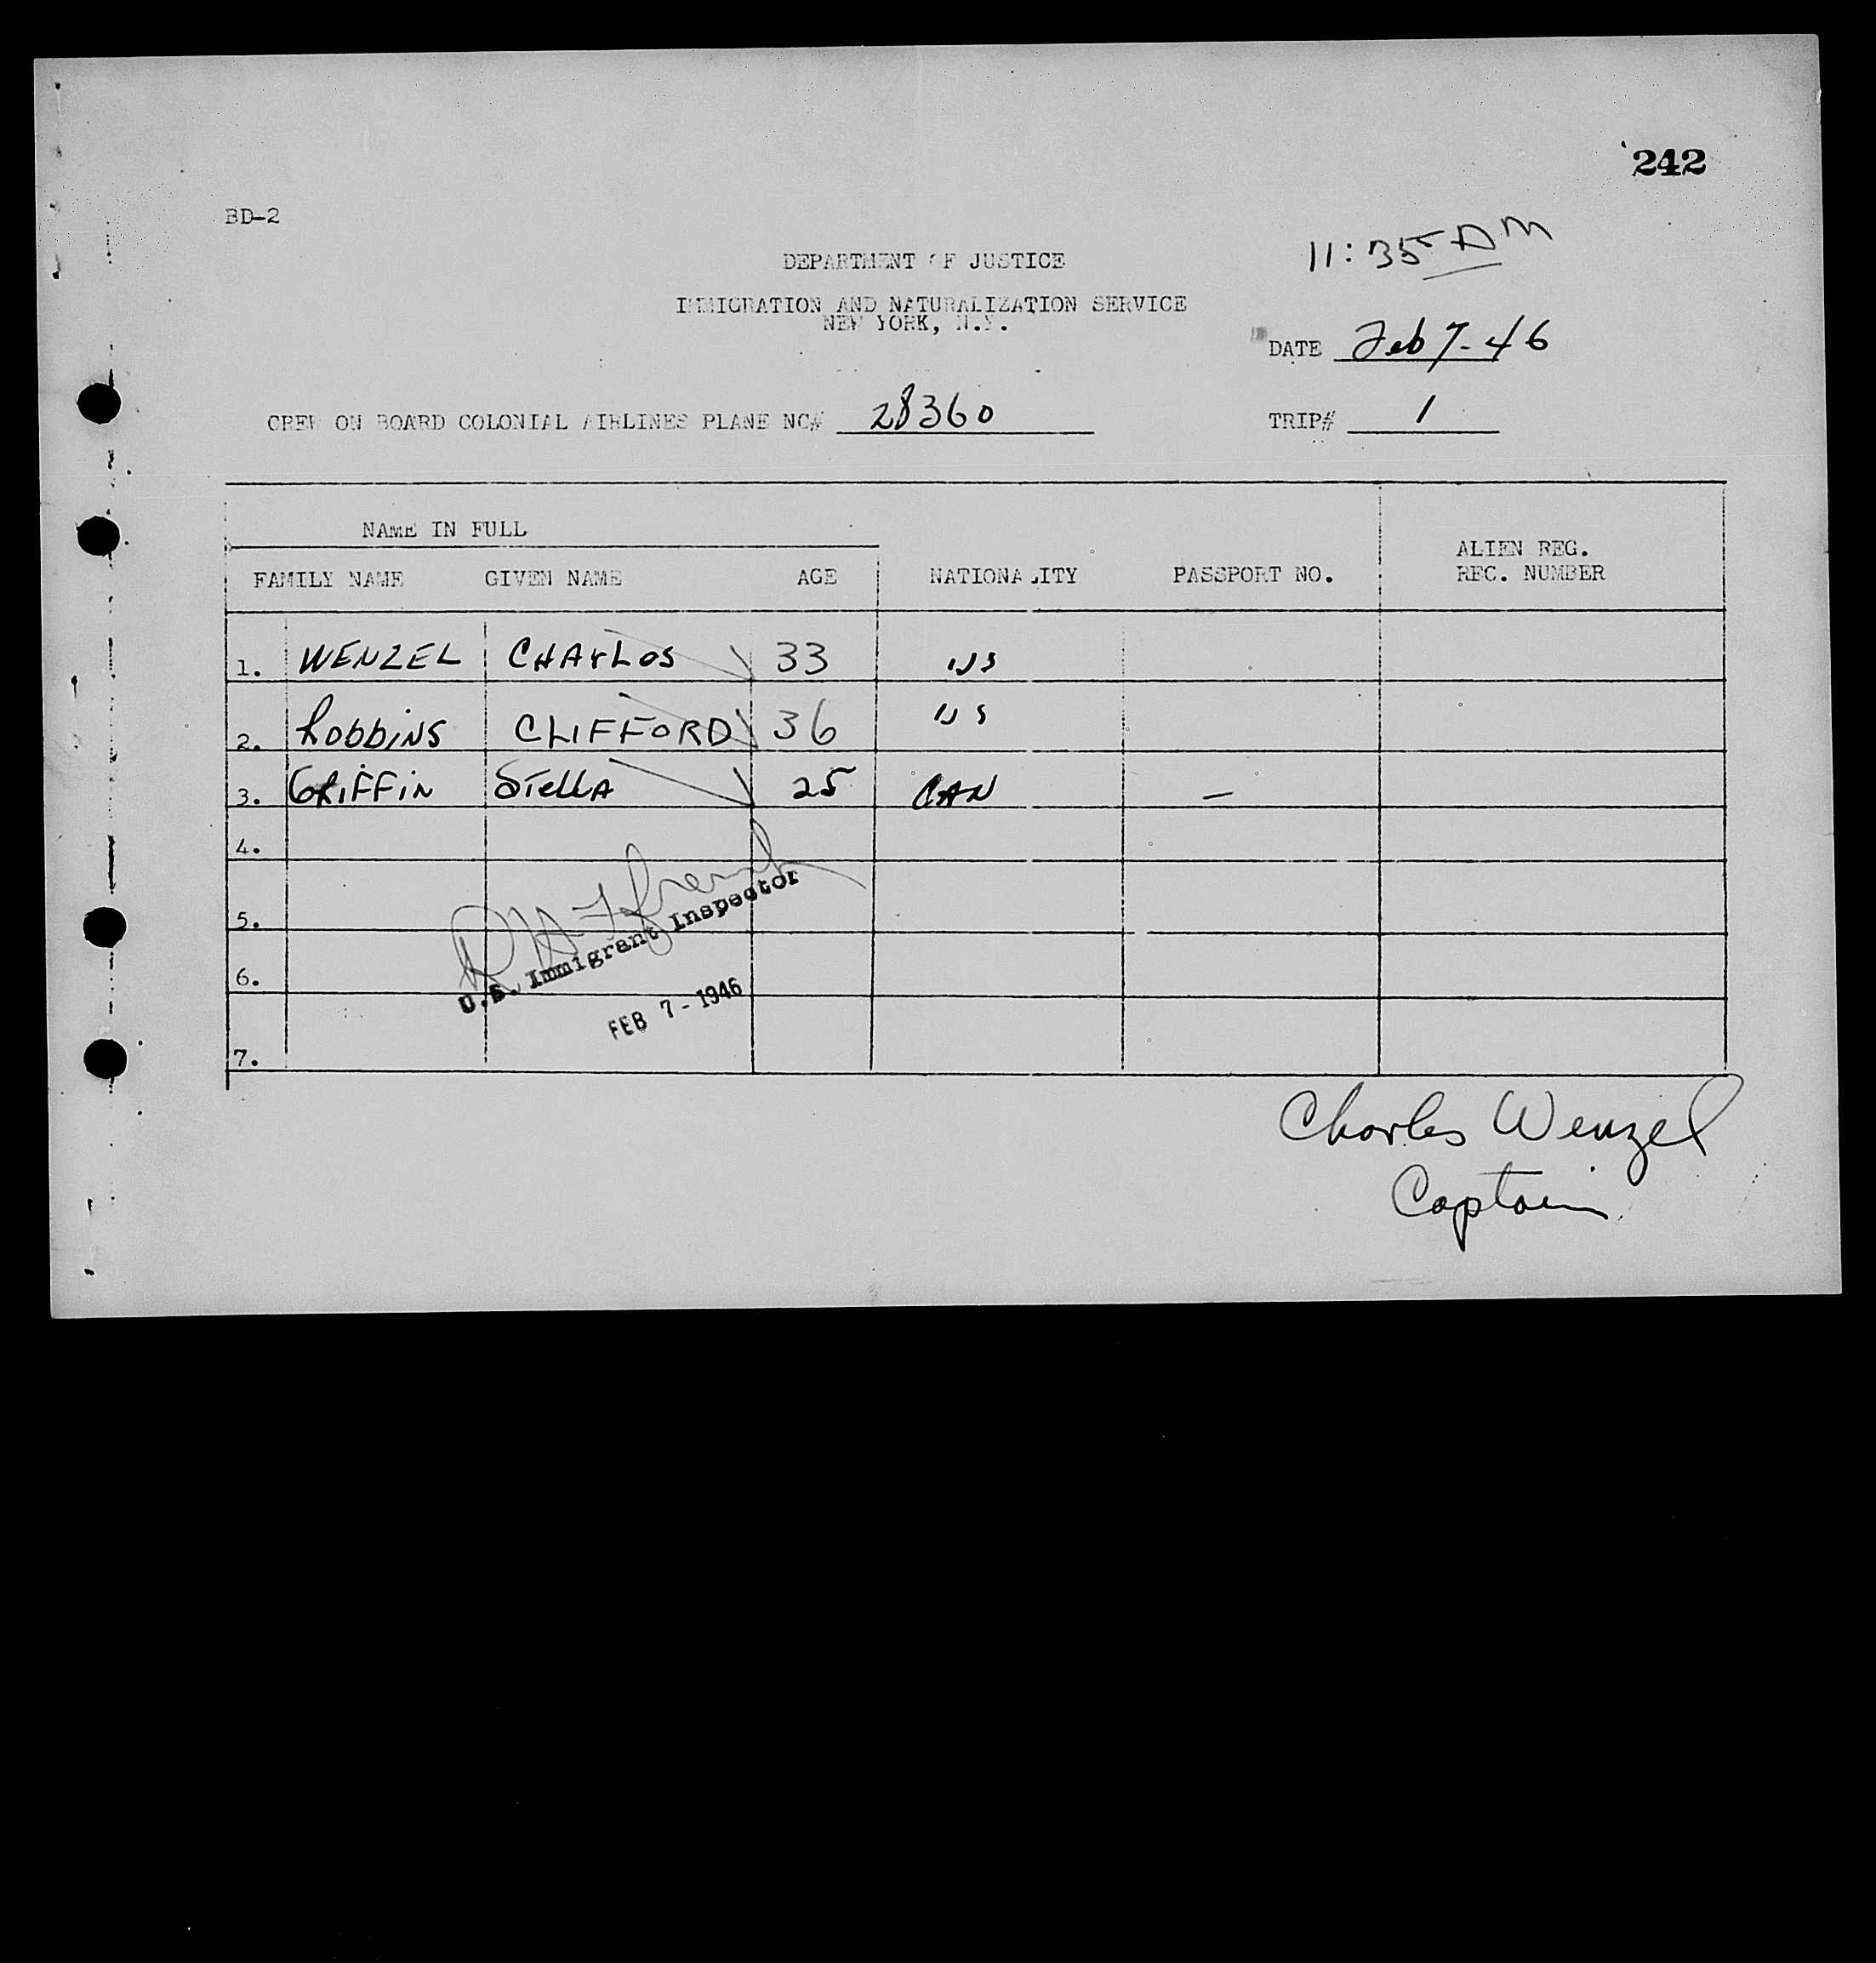 242
BD-2
11:35 AM
DEPARTMENT OF JUSTICE
IMMIGRATION AND NATURALIZATION SERVICE
NEW YORK, N.Y.
DATE Feb 7-46
CREW ON BOARD COLONIAL AIRLINES PLANE NC# 28360 TRIP# 1
NAME IN FULL
FAMILY NAME GIVEN NAME AGE NATIONALITY PASSPORT NO. ALIEN REG. REC. NUMBER
1. WENZEL CHArLes 33 US
2. Robbins CLIFFORD 36 US
3. GRiFFiN STeLLA 25 CAN —
4.
5.
6.
7.
U.S. Immigrant Inspector
FEB 7 - 1946
Charles Wenzel
Captain